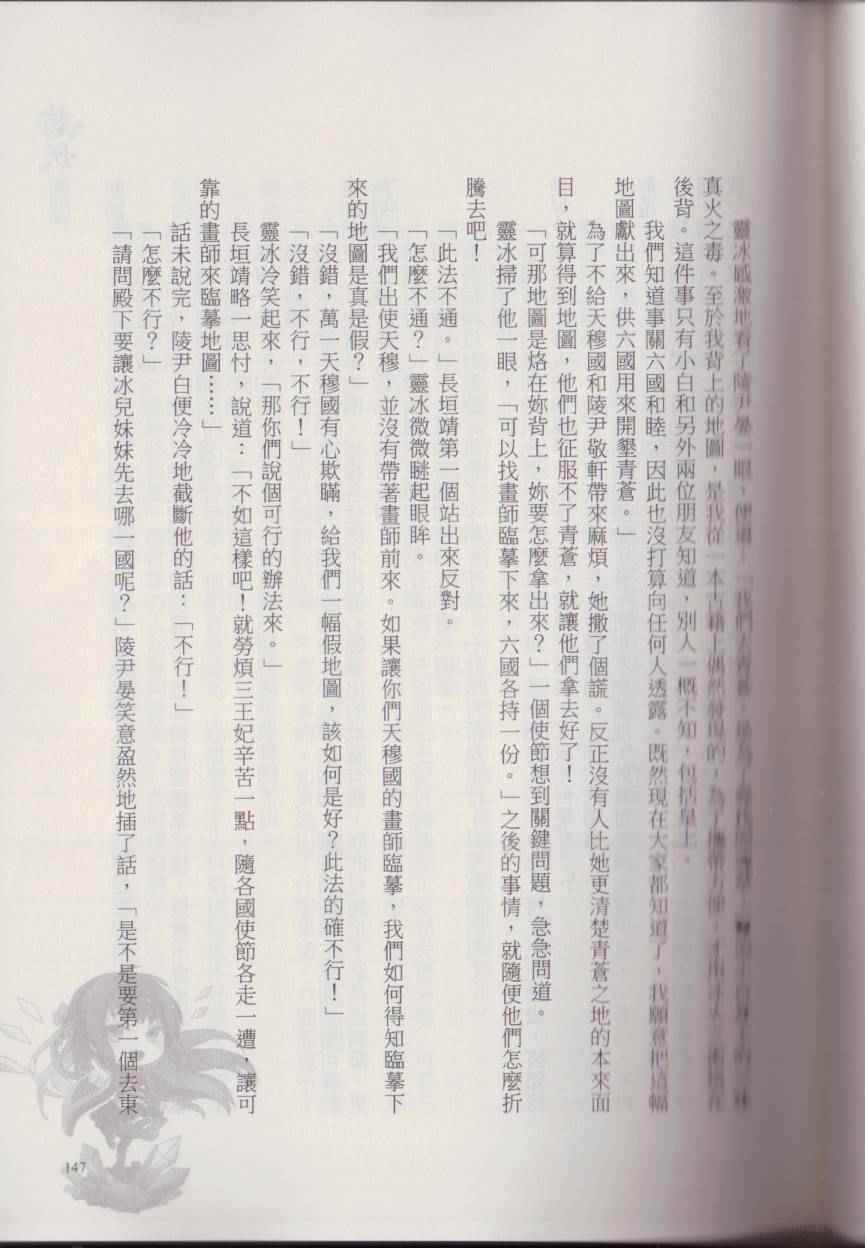 靈冰感激地看了陵尹晏一眼，便道：「我們去青蒼，
真火之毒。至於我背上的地圖，是我從一本古籍上偶然發現的，為了攜帶方便，才
後背。這件事只有小白和另外兩位朋友知道，別人一概不知，包括皇上。
我們知道事關六國和睦，因此也沒打算向任何人透露。既然現在大家都知道了，我願意把這幅
地圖獻出來，供六國用來開墾青蒼。」
為了不給天穆國和陵尹敬軒帶來麻煩，她撒了個謊。反正沒有人比她更清楚青蒼之地的本來面
目，就算得到地圖，他們也征服不了青蒼，就讓他們拿去好了！
「可那地圖是烙在妳背上，妳要怎麼拿出來？」一個使節想到關鍵問題，急急問道。
靈冰掃了他一眼，「可以找畫師臨摹下來，六國各持一份。」之後的事情，就隨便他們怎麼折
騰去吧！
「此法不通。」長垣靖第一個站出來反對。
「怎麼不通？」靈冰微微瞇起眼眸。
「我們出使天穆，並沒有帶著畫師前來。如果讓你們天穆國的畫師臨摹，我們如何得知臨摹下
來的地圖是真是假？」
「沒錯，萬一天穆國有心欺瞞，給我們一幅假地圖，該如何是好？此法的確不行！」
「沒錯，不行，不行！」
靈冰冷笑起來，「那你們說個可行的辦法來。」
長垣靖略一思忖，說道：「不如這樣吧！就勞煩三王妃辛苦一點，隨各國使節各走一遭，讓可
靠的畫師來臨摹地圖……」
話未說完，陵尹白便冷冷地截斷他的話：「不行！」
「怎麼不行？」
「請問殿下要讓冰兒妹妹先去哪一國呢？」陵尹晏笑意盈然地插了話，「是不是要第一個去東
147